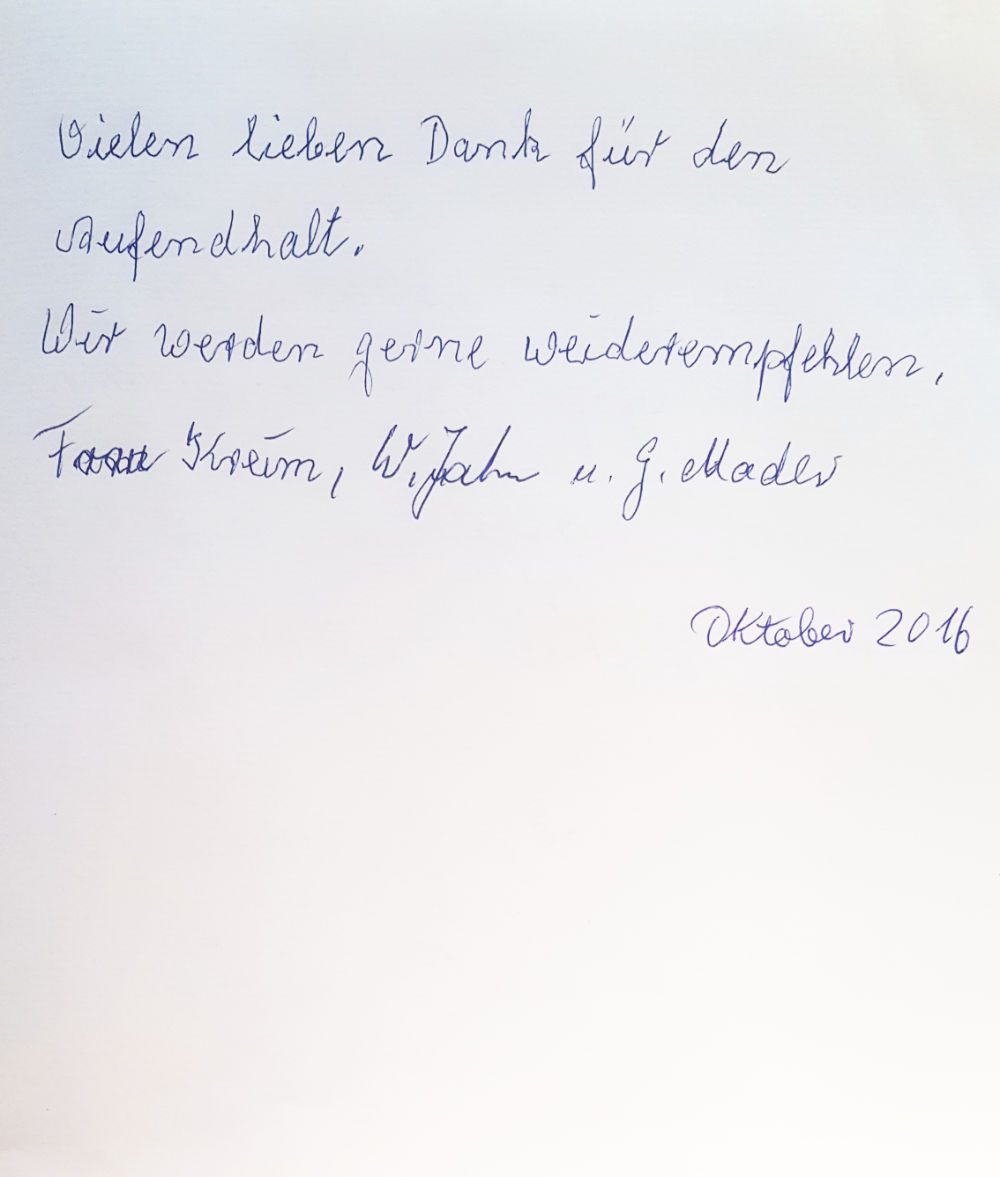 Vielen lieben Dank für den
Aufendhalt.
Wir werden gerne weiderempfehlen,
Kreim, W. Jahn u. G. Mader
Oktober 2016